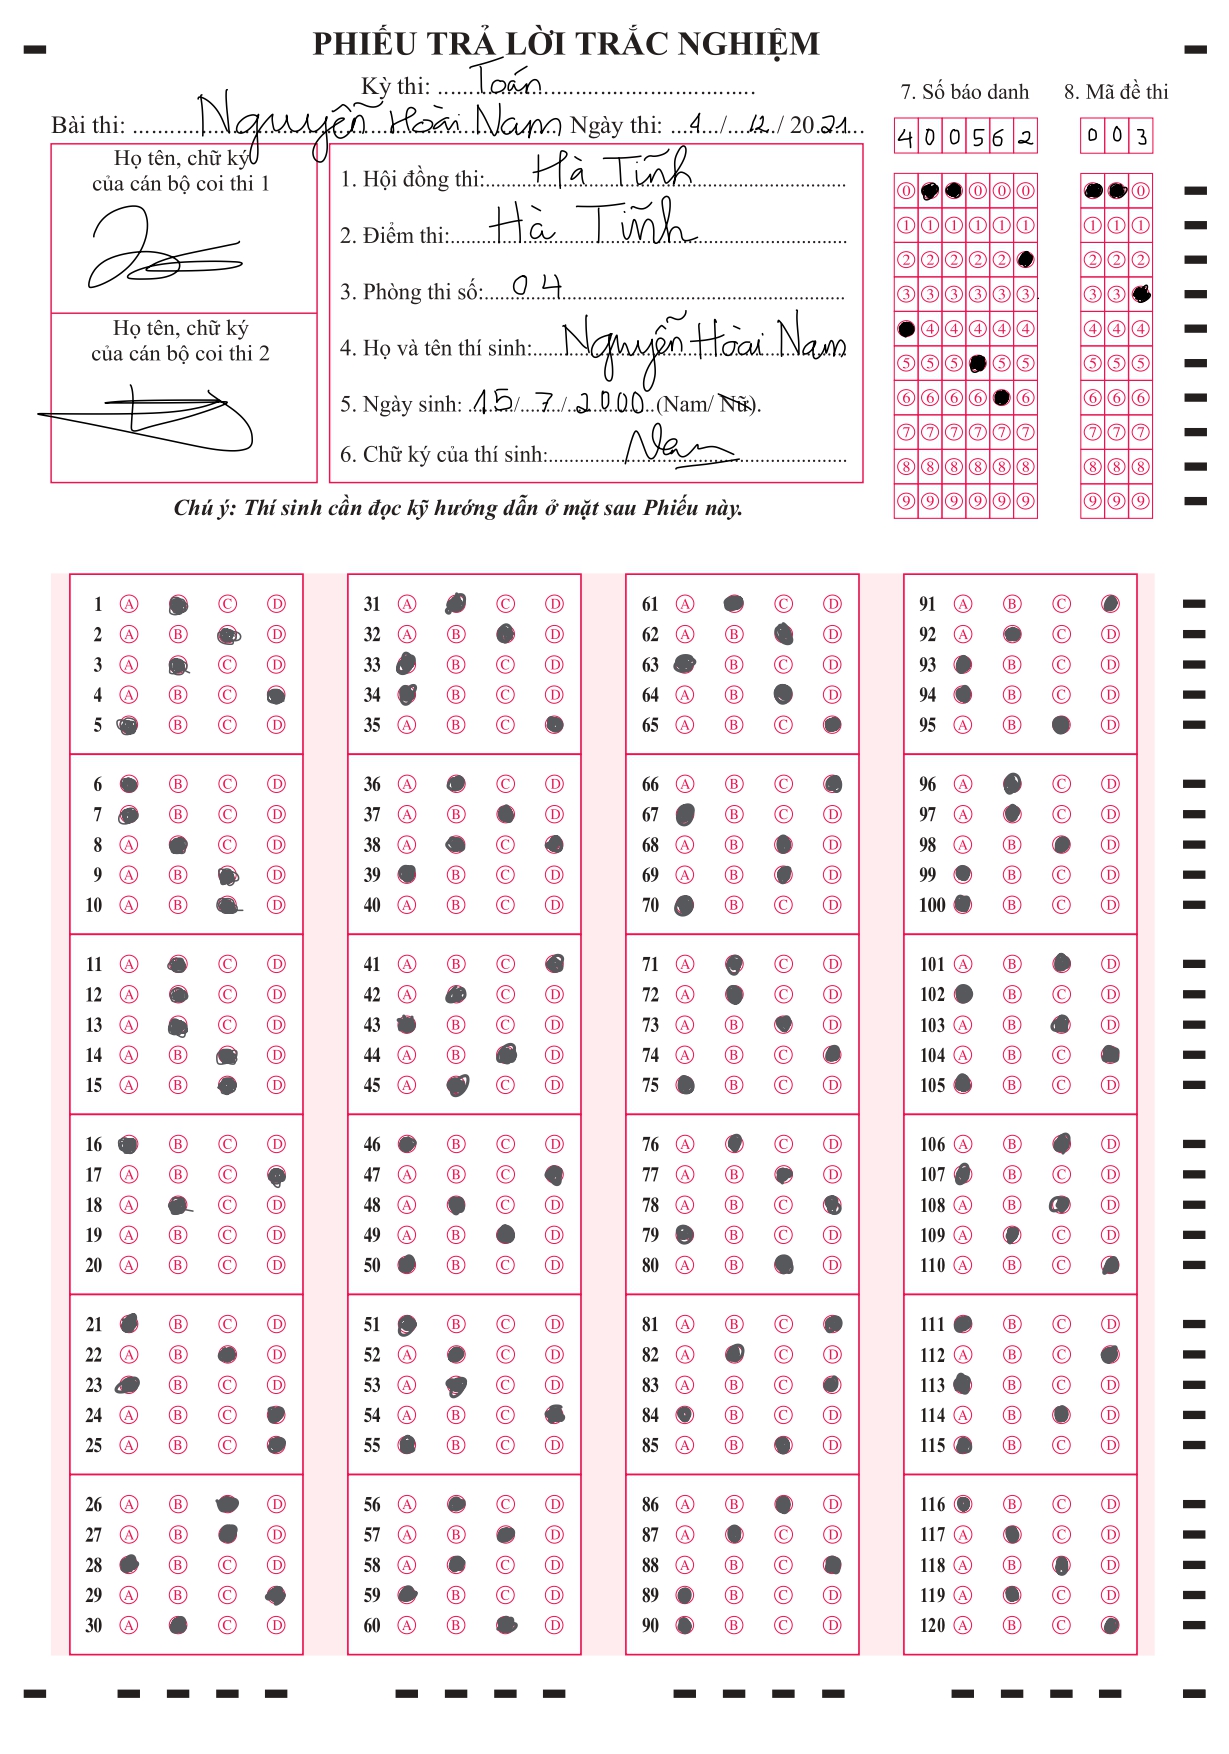 PHIẾU TRẢ LỜI TRẮC NGHIỆM
Kỳ thi: Toán
Bài thi: Nguyễn Hoài Nam Ngày thi: 1/12/2021
7. Số báo danh
8. Mã đề thi
400562
003
Họ tên, chữ ký
của cán bộ coi thi 1
Họ tên, chữ ký
của cán bộ coi thi 2
1. Hội đồng thi: Hà Tĩnh
2. Điểm thi: Hà Tĩnh
3. Phòng thi số: 04
4. Họ và tên thí sinh: Nguyễn Hoài Nam
5. Ngày sinh: 15/7/2000 (Nam/ Nữ).
6. Chữ ký của thí sinh: Nam
0 0 0 0 0
1 1 1 1 1 1 1 1 1
2 2 2 2 2 2 2 2
3 3 3 3 3 3 3 3
4 4 4 4 4 4 4 4
5 5 5 5 5 5 5 5
6 6 6 6 6 6 6 6
7 7 7 7 7 7 7 7 7
8 8 8 8 8 8 8 8 8
9 9 9 9 9 9 9 9 9
Chú ý: Thí sinh cần đọc kỹ hướng dẫn ở mặt sau Phiếu này.
1 A C D
2 A B D
3 A C D
4 A B C
5 B C D
6 B C D
7 B C D
8 A C D
9 A B D
10 A B D
11 A C D
12 A C D
13 A C D
14 A B D
15 A B D
16 B C D
17 A B C
18 A C D
19 A B C D
20 A B C D
21 B C D
22 A B D
23 B C D
24 A B C
25 A B C
26 A B D
27 A B D
28 B C D
29 A B C
30 A C D
31 A C D
32 A B D
33 B C D
34 B C D
35 A B C
36 A C D
37 A B D
38 A C
39 B C D
40 A B C D
41 A B C
42 A C D
43 B C D
44 A B D
45 A C D
46 B C D
47 A B C
48 A C D
49 A B D
50 B C D
51 B C D
52 A C D
53 A C D
54 A B C
55 B C D
56 A C D
57 A B D
58 A C D
59 B C D
60 A B D
61 A C D
62 A B D
63 B C D
64 A B D
65 A B C
66 A B C
67 B C D
68 A B D
69 A B D
70 B C D
71 A C D
72 A C D
73 A B D
74 A B C
75 B C D
76 A C D
77 A B D
78 A B C
79 B C D
80 A B D
81 A B C
82 A C D
83 A B C
84 B C D
85 A B D
86 A B D
87 A C D
88 A B C
89 B C D
90 B C D
91 A B C
92 A C D
93 B C D
94 B C D
95 A B D
96 A C D
97 A C D
98 A B D
99 B C D
100 B C D
101 A B D
102 B C D
103 A B D
104 A B C
105 B C D
106 A B D
107 B C D
108 A B D
109 A C D
110 A B C
111 B C D
112 A B C
113 B C D
114 A B D
115 B C D
116 B C D
117 A C D
118 A B D
119 A C D
120 A B C